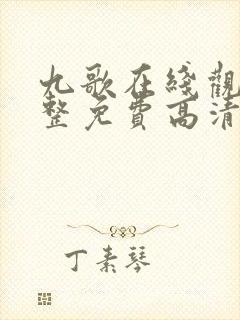 九歌在綫觀
整免費高清
丁素琴